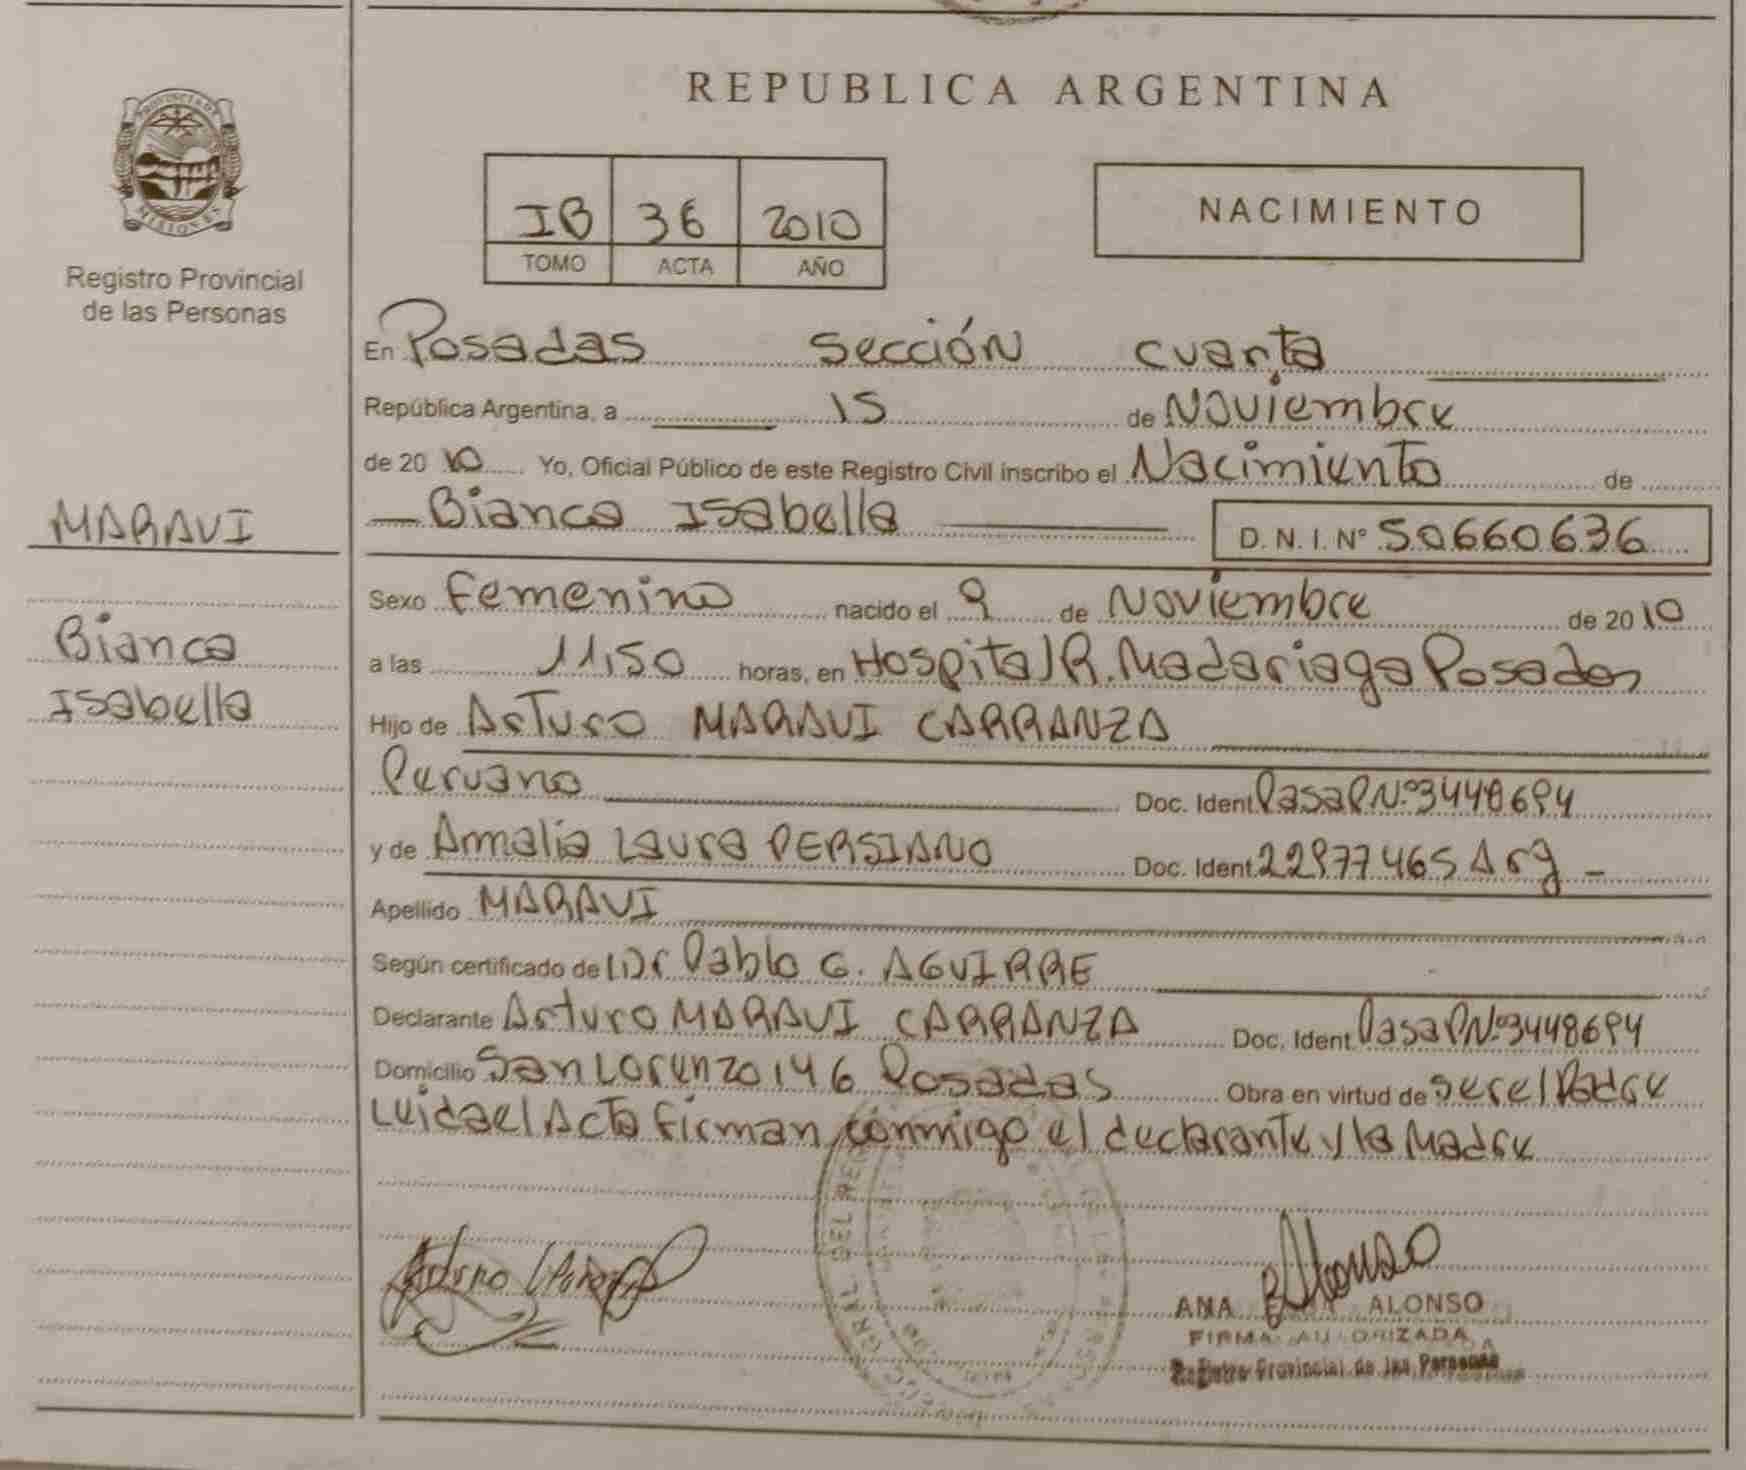 REPUBLICA ARGENTINA
PROVINCIA DE
MISIONES
Registro Provincial
de las Personas
IB 36 2010
TOMO ACTA AÑO
NACIMIENTO
En Posadas sección cuarta
República Argentina, a 15 de Noviembre
de 20 10 Yo, Oficial Público de este Registro Civil inscribo el Nacimiento de
MARAVI
Bianca Isabella
D. N. I. Nº 50660636
Bianca
Isabella
Sexo Femenino nacido el 9 de Noviembre de 20 10
a las 11,50 horas, en Hospital R. Madariaga Posadas
Hijo de Arturo MARAVI CARRANZA
Peruano Doc. Ident. PasaP.Nº 3448694
y de Amalia Laura PERSIANO Doc. Ident. 22977465 Arg -
Apellido MARAVI
Según certificado de Dr Pablo G. AGUIRRE
Declarante Arturo MARAVI CARRANZA Doc. Ident. PasaP Nº 3448694
Domicilio San Lorenzo 146 Posadas Obra en virtud de ser el Padre
Leida el Acta firman conmigo el declarante y la Madre
Alonso
ANA ALONSO
FIRMA AUTORIZADA
Registro Provincial de las Personas